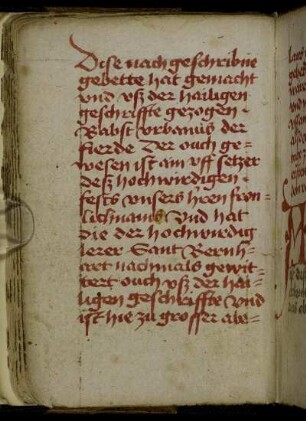 Dise nach geschribne
gebette hat gemacht
vnd vsz der hailigen
geschriffte gezogen ·
Babst vrbanus der
fierde Der ouch ge=
wesen ist ain vff setzer
desz hochwirdigen ·
fests vnsers hren fron=
lichnams Vnd hat
die der hochwirdig
lerer Sant Bernh=
art nachmals gewit=
tert ouch vsz der hai=
ligen geschriffte Vnd
ist hie zu grosser abe=